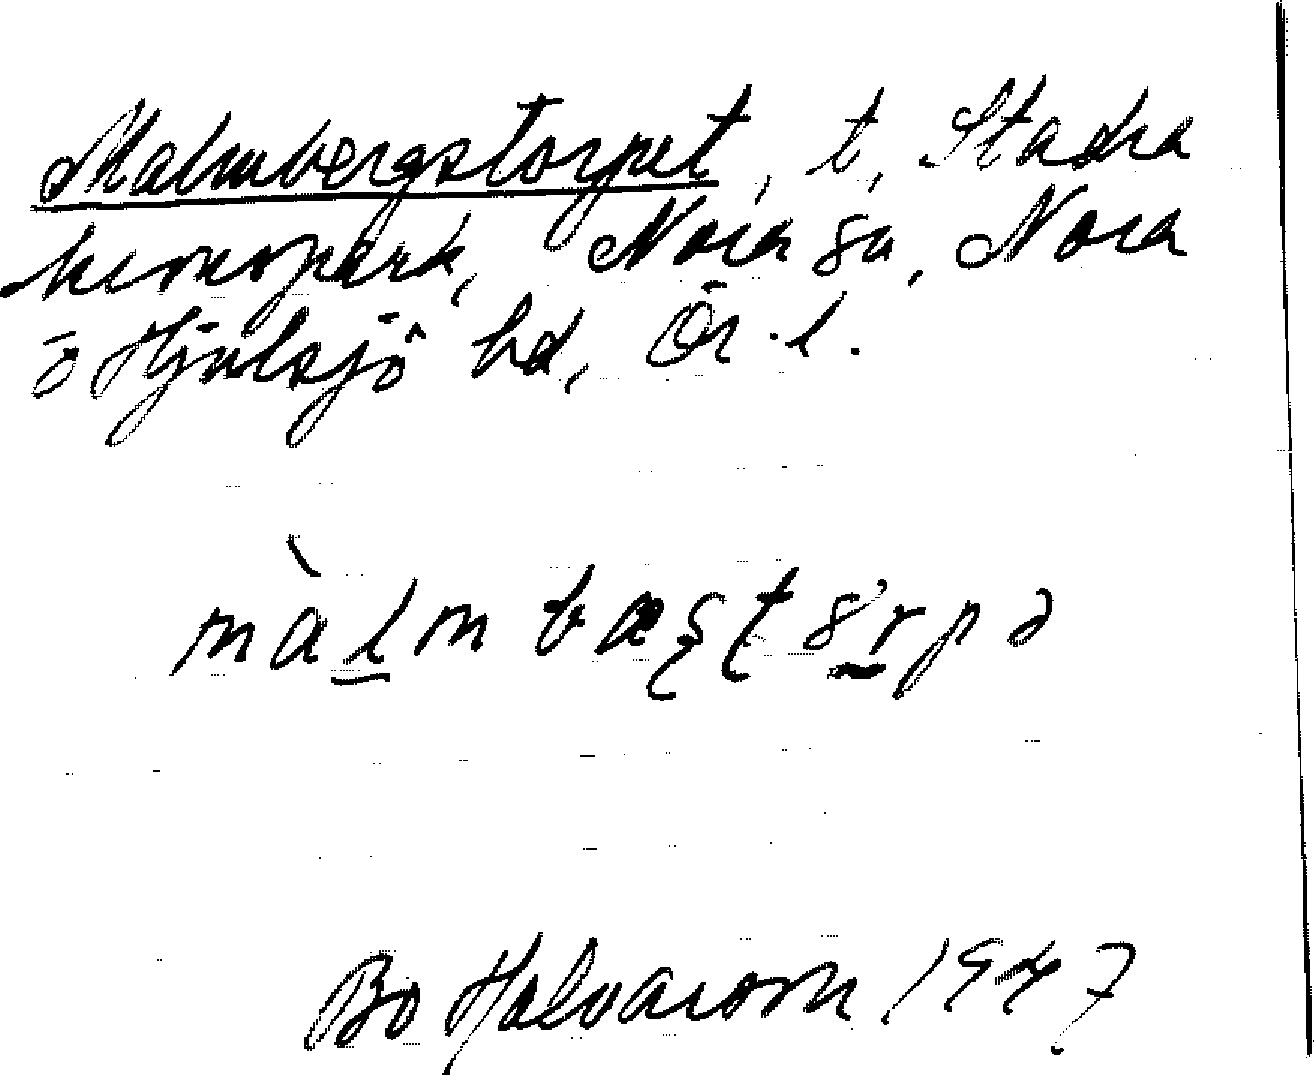 Malmbergstorpet, t, Stadra
kronopark, Nora sn, Nora
o Hjulsjö hd, Ör. l.
màlmbæʂʈɞrpə
Bo Halvarson 1947